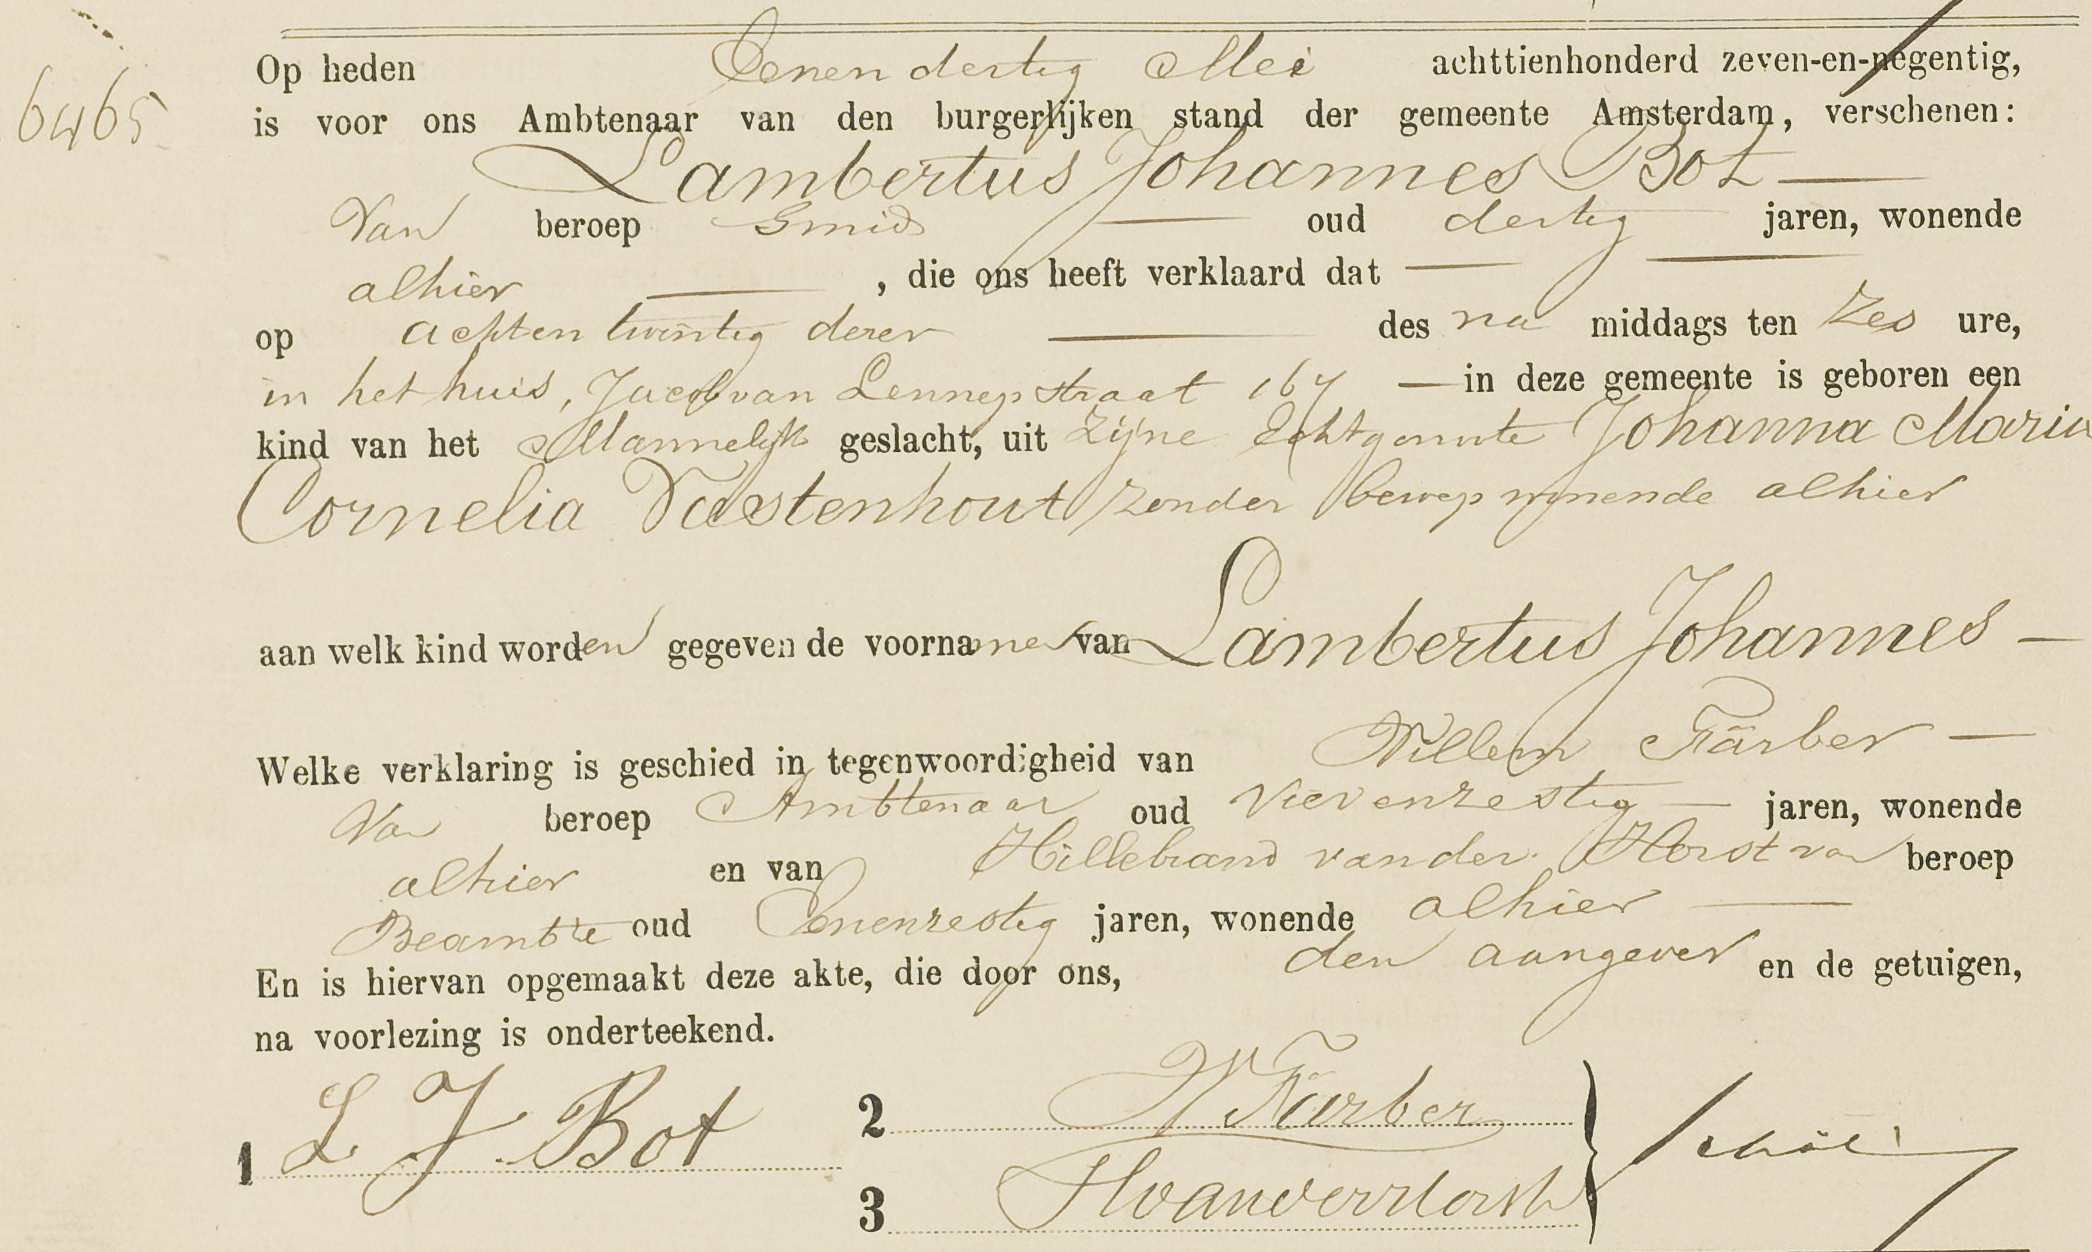 6465
Op heden Eenendertig Mei achttienhonderd zeven-en-negentig,
is voor ons Ambtenaar van den burgerlijken stand der gemeente Amsterdam, verschenen:
Lambertus Johannes Bot
Van beroep Smid oud dertig jaren, wonende
alhier, die ons heeft verklaard dat
op achtentwintig dezer des na middags ten zes ure,
in het huis, Jacob van Lennepstraat 167 in deze gemeente is geboren een
kind van het Mannelijk geslacht, uit zijne Echtgenoote Johanna Maria
Cornelia Vastenhout zonder beroep wonende alhier
aan welk kind worden gegeven de voornamen van Lambertus Johannes
Welke verklaring is geschied in tegenwoordigheid van Willem Färber
Van beroep Ambtenaar oud Vierenzestig jaren, wonende
alhier en van Hillebrand van der Horst van beroep
Beambte oud Eenenzestig jaren, wonende alhier
En is hiervan opgemaakt deze akte, die door ons, den aangever en de getuigen,
na voorlezing is onderteekend.
1 L J Bot
2 W Färber
3 H van der Horst